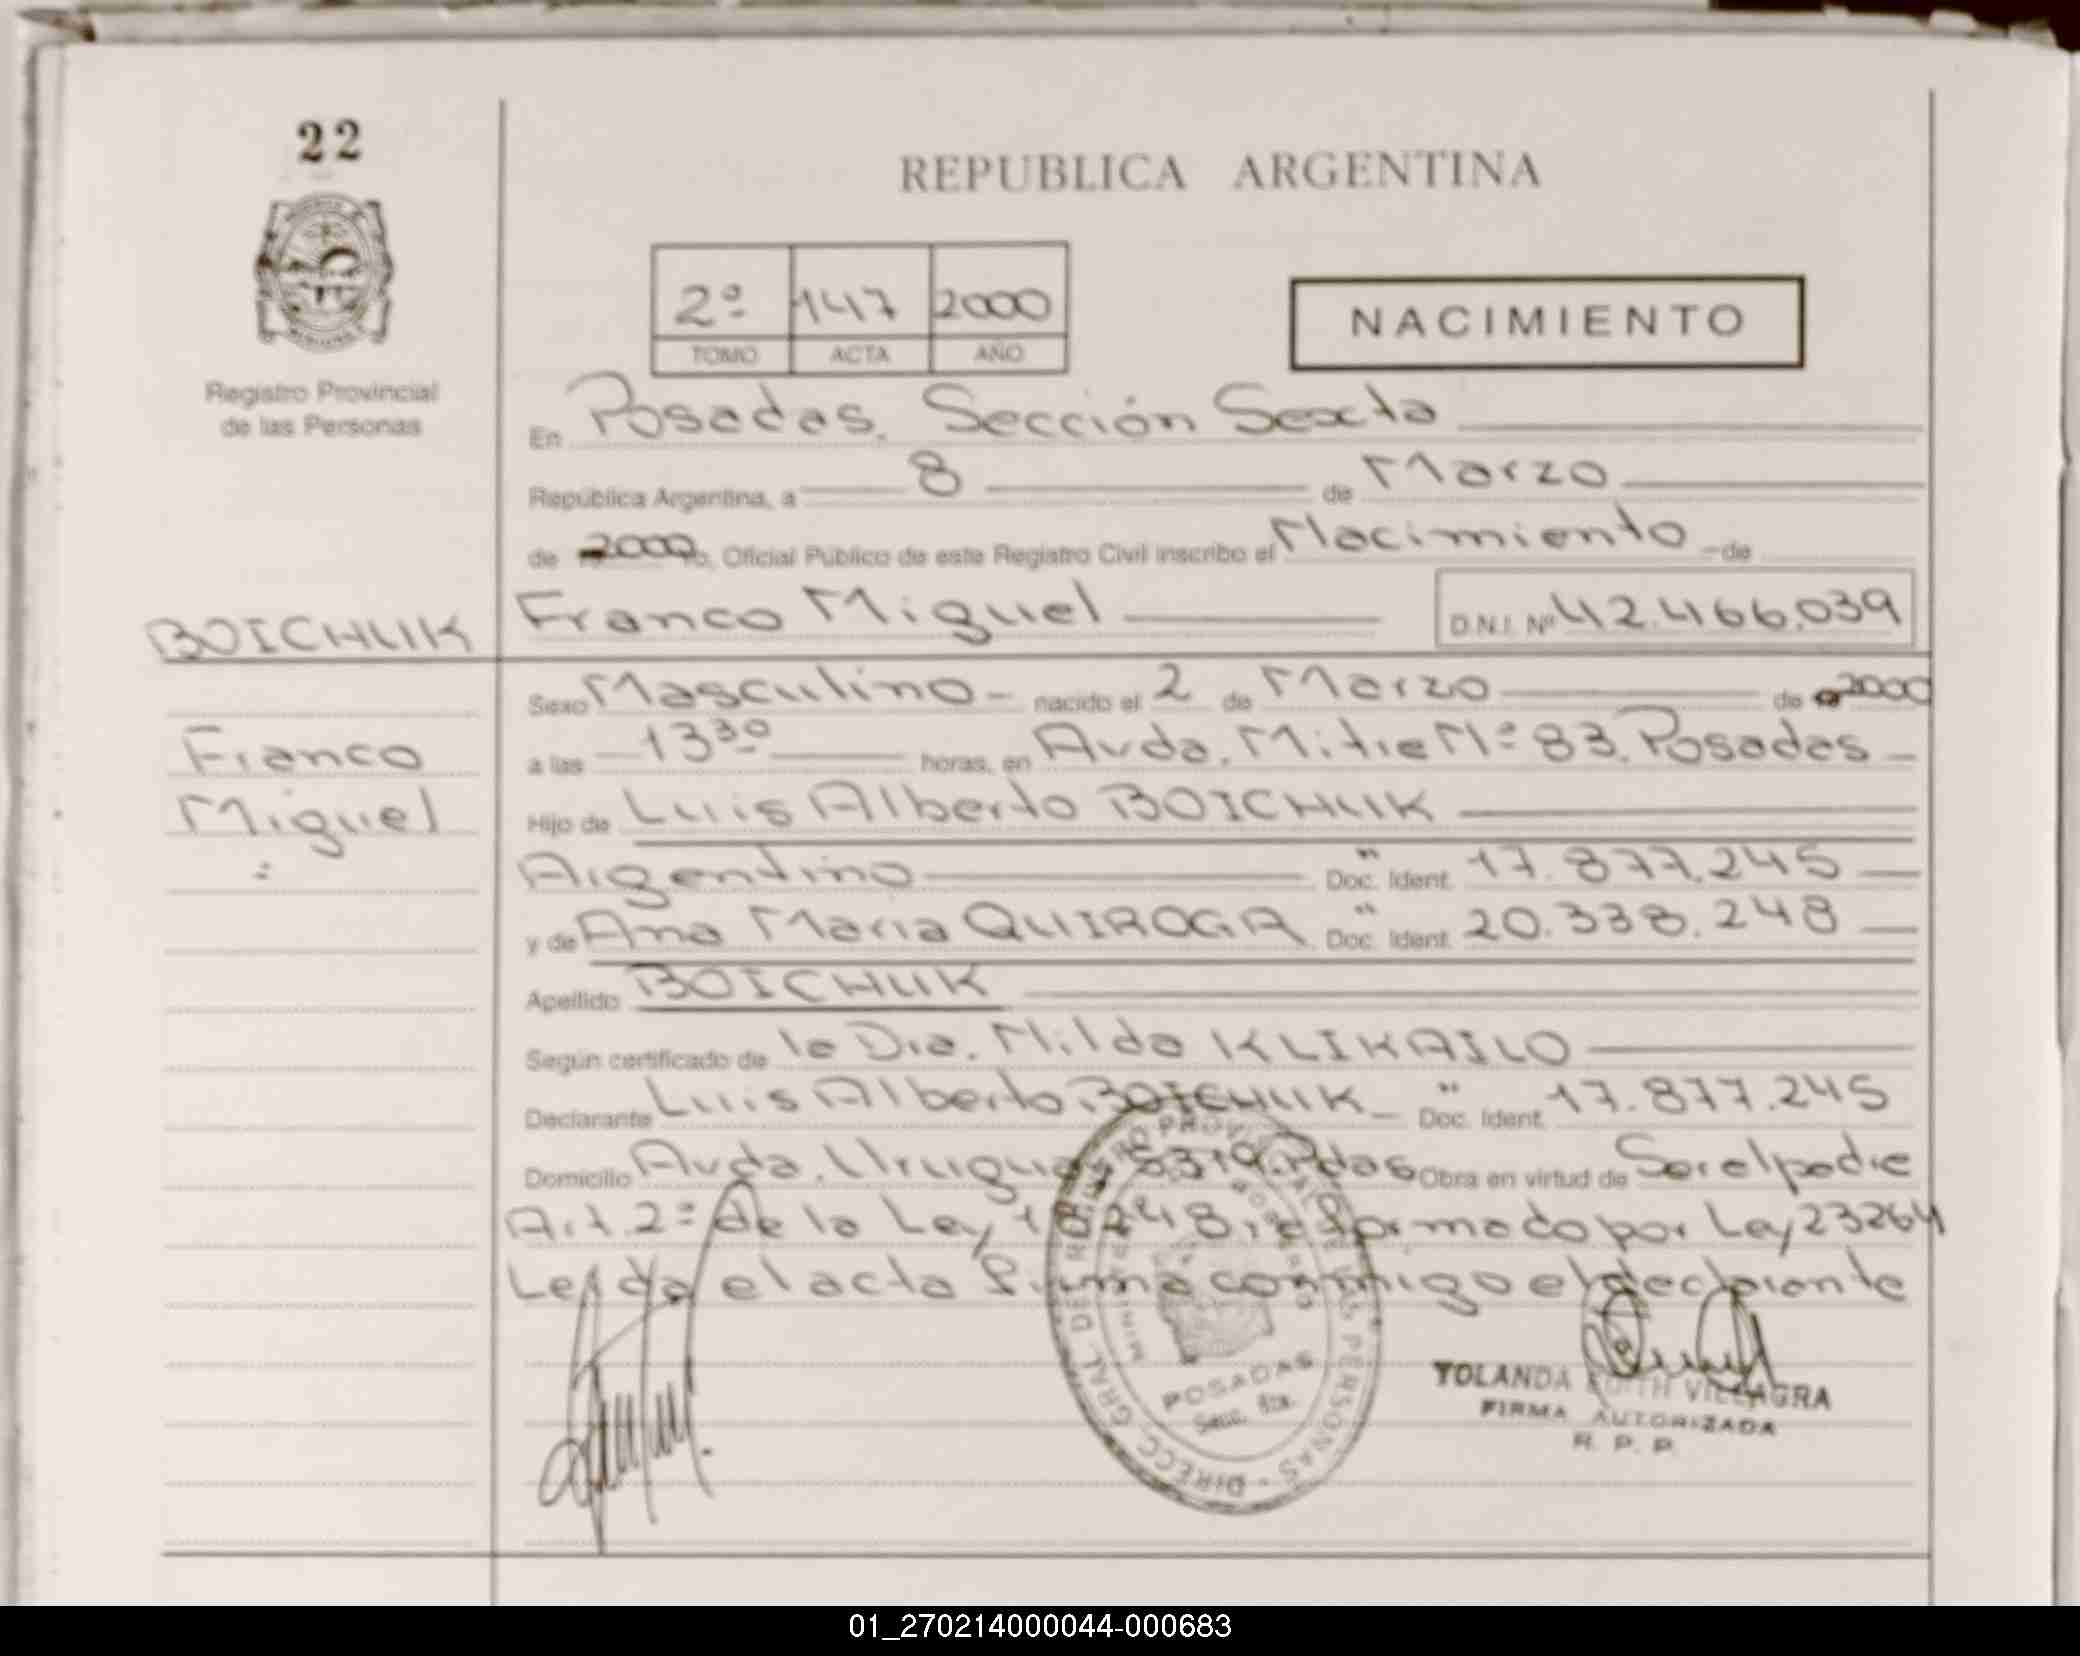 22
REPUBLICA ARGENTINA
2º 147 2000
TOMO ACTA AÑO
NACIMIENTO
Registro Provincial
de las Personas
En Posadas, Sección Sexta
República Argentina, a 8 de Marzo
de 2000 yo, Oficial Público de este Registro Civil inscribo el Nacimiento de
BOICHUK Franco Miguel D.N.I. Nº 42.466.039
Sexo Masculino nacido el 2 de Marzo de 2000
Franco a las 13 30 horas, en Avda. Mitre Nº 83. Posadas
Miguel Hijo de Luis Alberto BOICHUK
Argentino Doc. Ident. 17.877.245
y de Ana Maria QUIROGA Doc. Ident. 20.338.248
Apellido BOICHUK
Según certificado de la Dra. Nilda KLIKAILO
Declarante Luis Alberto BOICHUK Doc. Ident. 17.877.245
Domicilio Avda. Uruguay Pdas Obra en virtud de Ser el padre
Art. 2º de la Ley 18.248, reformado por Ley 23264
Leida el acta firma conmigo el declarante
DIRECC. GRAL. DEL REGISTRO PROVINCIAL DE LAS PERSONAS
POSADAS
Secc. 6ta.
YOLANDA EDITH VILLAGRA
FIRMA AUTORIZADA
R. P. P.
01_270214000044-000683